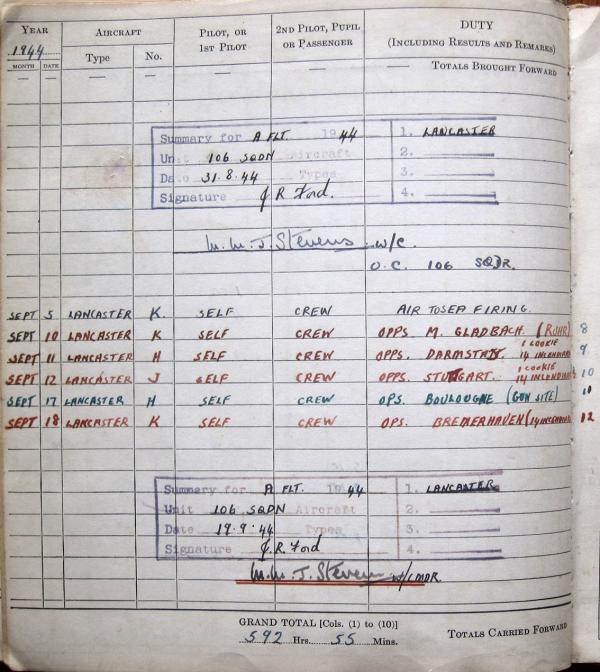 YEAR AIRCRAFT PILOT, OR 1ST PILOT 2ND PILOT, PUPIL OR PASSENGER DUTY (INCLUDING RESULTS AND REMARKS)
1944
MONTH DATE Type No. TOTALS BROUGHT FORWARD
Summary for A FLT. 1944 1. LANCASTER
Unit 106 SQDN Aircraft 2.
Date 31.8.44 Types 3.
Signature J.R Ford. 4.
M.M.J. Stevens W/C.
O.C. 106 SQDR.
SEPT 5 LANCASTER K. SELF CREW AIR TO SEA FIRING
SEPT 10 LANCASTER K SELF CREW OPPS. M. GLADBACH. (RUHR) 8
SEPT 11 LANCASTER H SELF CREW OPPS. DARMSTATT. 1 COOKIE 14 INCENDIARI 9
SEPT 12 LANCASTER J SELF CREW OPPS. STUTTGART. 1 COOKIE 14 INCENDIARI 10
SEPT 17 LANCASTER H SELF CREW OPS. BOULOUGNE (GUN SITE) 11
SEPT 18 LANCASTER K SELF CREW OPS. BREMERHAVEN (14 INCENDIARI 12
Summary for A FLT. 1944 1. LANCASTER
Unit 106 SQDN Aircraft 2.
Date 19.9.44 Types 3.
Signature J.R. Ford 4.
M.M.J. Stevens W/CMDR.
GRAND TOTAL [Cols. (1) to (10)]
592 Hrs. 55 Mins. TOTALS CARRIED FORWARD